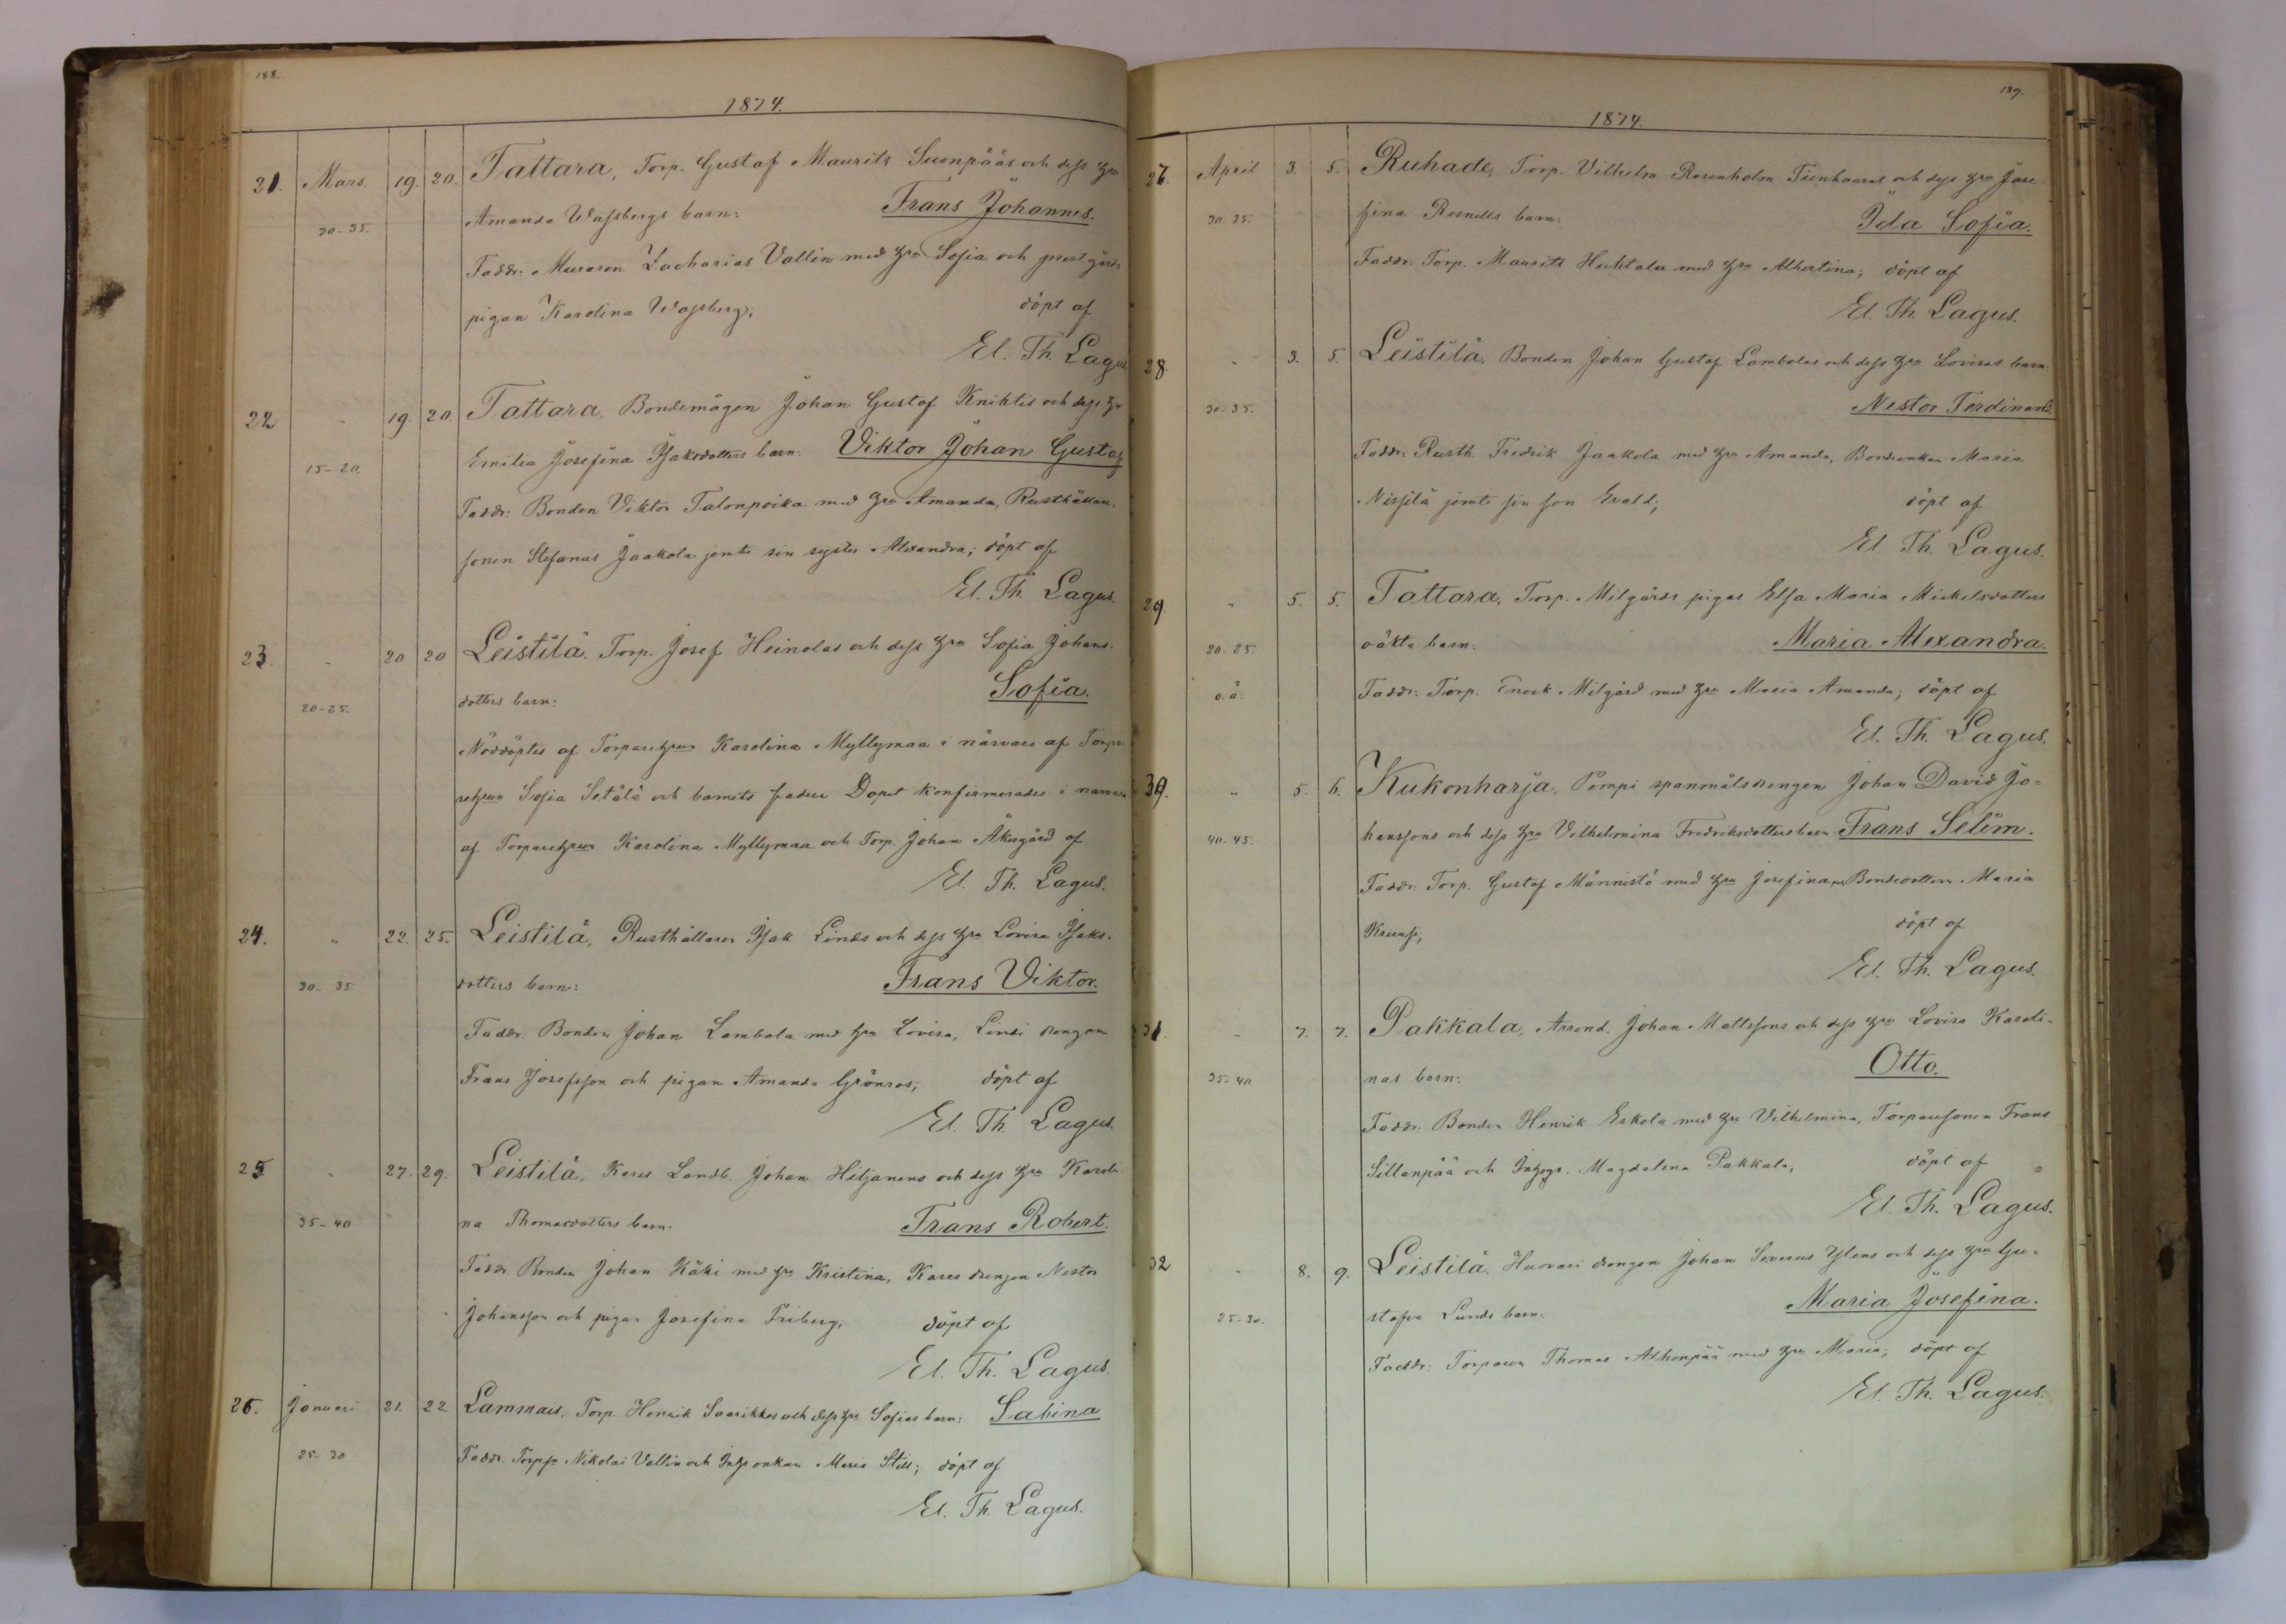 188.
1874.
21. Mars. 19. 20. Tattara, Torp. Gustaf Maurits Suonpääs och dess hru
30-35. Amanda Wassbergs barn: Frans Johannes.
Faddr: Muraren Zacharias Vallin med hru Sofia och prestgårds
pigan Karolina Wassberg; döpt af
El. Th. Lagus
22 " 19. 20. Tattara, Bondemågen Johan Gustaf Knihtis och dess hru
15-20. Emilia Josefina Isaksdotters barn: Viktor Johan Gustaf
Faddr: Bonden Viktor Talonpoika med hru Amanda, Rusthållare-
sonen Stefanus Jaakola jemte sin syster Alexandra; döpt af
El. Th. Lagus.
23. " 20 20 Leistilä, Torp. Josef Heinolas och dess hru Sofia Johans-
20-25. dotters barn: Sofia.
Nöddöptes af Torparehrun Karolina Myllymaa i närvaro af Torpa-
rehrun Sofia Setälä och barnets fader Dopet konfirmerades i närvaro
af Torparehrun Karolina Myllymaa och Torp. Johan Åkergård af
El. Th. Lagus.
24. " 22. 25. Leistilä, Rusthållaren Isak Linds och dess hru Lovisa Isaks-
30-35 dotters barn: Frans Viktor.
Faddr: Bonden Johan Lambola med hru Lovisa, Lindi drengen
Frans Josefsson och pigan Amanda Grönroos; döpt af
El. Th. Lagus.
25 " 27. 29. Leistilä, Kares Landb. Johan Hiljanens och dess hru Karoli-
35-40 na Thomasdotters barn: Frans Robert.
Faddr. Bonden Johan Käki med hru Kristina, Kares drengen Nestor
Johansson och pigan Josefina Friberg; döpt af
El. Th. Lagus.
26. Januari 21. 22. Lammais, Torp. Henrik Saarikkos och dess hru Sofias barn: Sabina
25-30 Faddr. Nikolai Vallin och Maria Still; döpt af
El. Th. Lagus.
189.
1874.
27. April 3. 5. Ruhade, Torp. Vilhelm Rosenholm Tienhaaras och dess hru Jose-
30-35. fina Rosnells barn: Ida Sofia.
Faddr: Torp. Maurits Huhtala med hru Albertina; döpt af
El. Th. Lagus.
28. " 3. 5. Leistilä, Bonden Johan Gustaf Lambolas och dess hru Lovisas barn:
30-35. Nestor Ferdinand.
Faddr: Rusth. Fredrik Jaakola med hru Amanda, Bondeenkan Maria
Nissilä jemte sin son Evald; döpt af
El. Th. Lagus.
29 " 5. 5. Tattara, Torp. Milgårds pigas Elsa Maria Mickelsdotters
20-25. oäkta barn: Maria Alexandra.
o.ä. Faddr: Torp. Enock Milgård med hru Maria Amanda; döpt af
El. Th. Lagus.
30. " 5. 6. Kukonharja, Pempi spanmålsdrengen Johan David Jo-
40-45. hanssons och dess hru Vilhelmina Fredriksdotters barn: Frans Selim.
Faddr: Torp. Gustaf Männistö med hru Josefina, Bondedottern Maria
döpt af
El. Th. Lagus.
31. " 7. 7. Pakkala, Arrend. Johan Mattssons och dess hru Lovisa Karoli-
35-40. nas barn: Otto.
Faddr: Bonden Henrik Eskola med hru Vilhelmina, Torparesonen Frans
Sillanpää och Magdalena Pakkala; döpt af
El. Th. Lagus.
32 " 8. 9. Leistilä, Huovari drengen Johan Severus Ylens och dess hru Gu-
25-30. stafva Lunds barn: Maria Josefina.
Faddr: Torparen Thomas Alhonpää med hru Maria; döpt af
El. Th. Lagus.